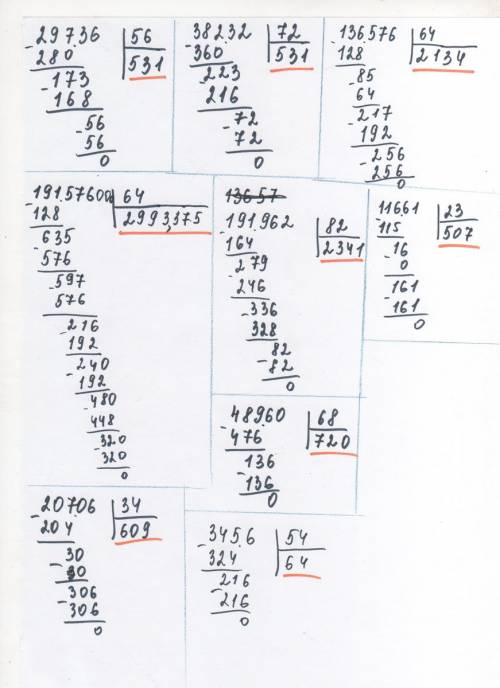 29736 56
280 531
173
168
56
56
0
38232 72
360 531
223
216
72
72
0
136576 64
128 2134
85
64
217
192
256
256
0
191,57600 64
128 2993,375
635
576
597
576
216
192
240
192
480
448
320
320
0
13657
191,962 82
164 2341
279
246
336
328
82
82
0
11661 23
115 507
16
0
161
161
0
48960 68
476 720
136
136
0
20706 34
204 609
30
30
306
306
0
3456 54
324 64
216
216
0